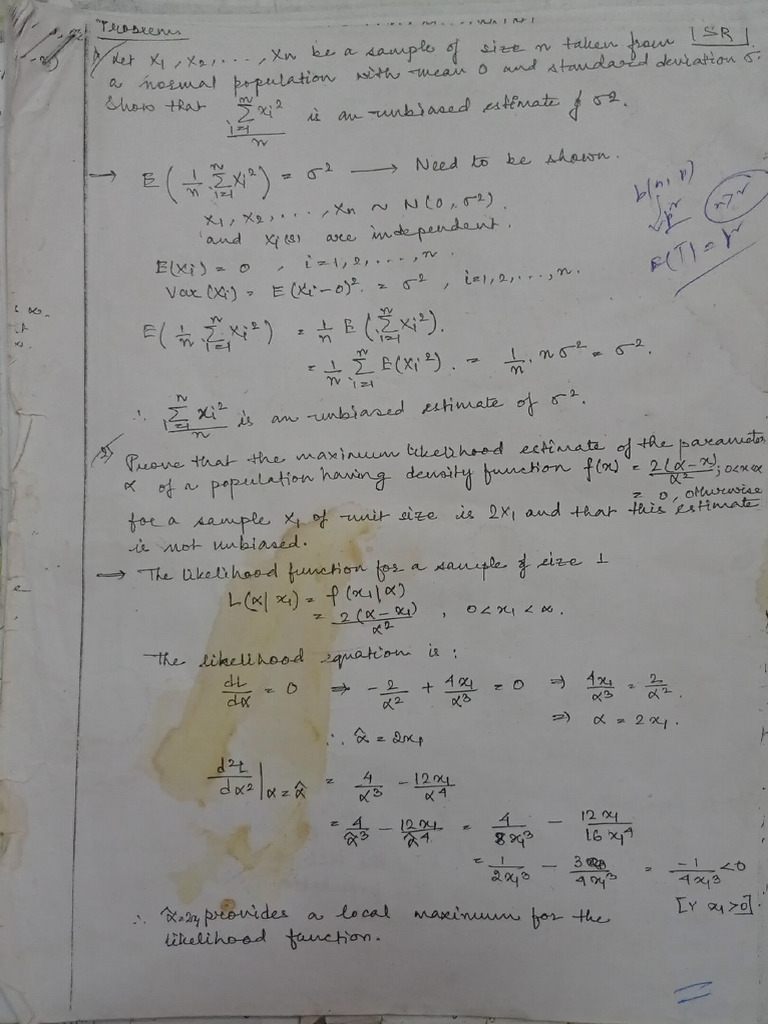 Theorem
1) Let X₁, X₂, ..., Xn be a sample of size n taken from |SR|
a normal population with mean 0 and standard deviation σ.
Show that (∑_{i=1}^{n} xi²)/n is an unbiased estimate of σ².
→ E(1/n ∑_{i=1}^{n} Xi²) = σ² → Need to be shown.
X₁, X₂, ..., Xn ~ N(0, σ²).
and Xi(s) are independent.
b(n, p)
E(T) = p^r
n > r
E(Xi) = 0, i=1,2,...,n.
Var(Xi) = E(Xi-0)² = σ², i=1,2,...,n.
E(1/n ∑_{i=1}^{n} Xi²) = 1/n E(∑_{i=1}^{n} Xi²).
= 1/n ∑_{i=1}^{n} E(Xi²). = 1/n . nσ² = σ².
∴ (∑_{i=1}^{n} xi²)/n is an unbiased estimate of σ².
2) Prove that the maximum likelihood estimate of the parameter
α of a population having density function f(x) = 2(α-x)/α² ; 0<x<α
= 0, otherwise
for a sample x₁ of unit size is 2x₁ and that this estimate
is not unbiased.
→ The likelihood function for a sample of size 1
L(α|x₁) = f(x₁|α)
= 2(α-x₁)/α², 0<x₁<α.
The likelihood equation is:
dL/dα = 0 ⇒ -2/α² + 4x₁/α³ = 0 ⇒ 4x₁/α³ = 2/α².
⇒ α = 2x₁.
∴ α̂ = 2x₁
d²L/dα²|α=α̂ = 4/α³ - 12x₁/α⁴
= 4/α̂³ - 12x₁/α̂⁴ = 4/8x₁³ - 12x₁/16x₁⁴
= 1/2x₁³ - 3/4x₁³ = -1/4x₁³ <0
[∵ x₁>0].
∴ α̂=2x₁ provides a local maximum for the
likelihood function.